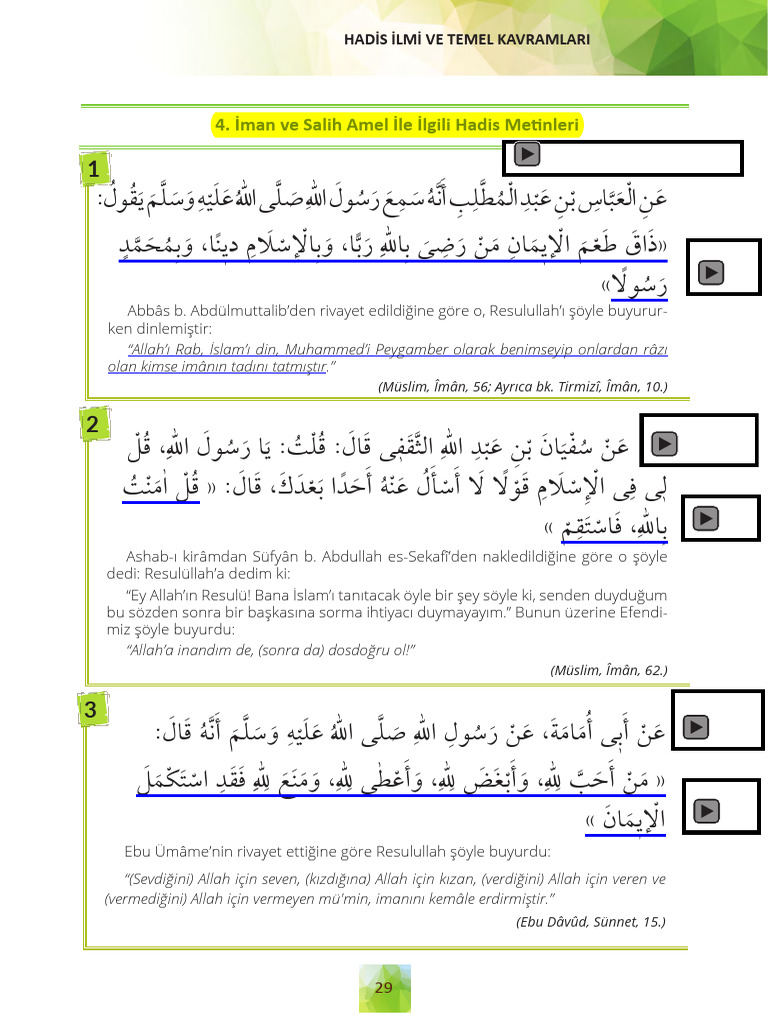 HADİS İLMİ VE TEMEL KAVRAMLARI
4. İman ve Salih Amel İle İlgili Hadis Metinleri
1
عَنِ الْعَبَّاسِ بْنِ عَبْدِ الْمُطَّلِبِ أَنَّهُ سَمِعَ رَسُولَ اللهِ صَلَّى اللهُ عَلَيْهِ وَسَلَّمَ يَقُولُ:
«ذَاقَ طَعْمَ الْإِيمَانِ مَنْ رَضِيَ بِاللهِ رَبًّا، وَبِالْإِسْلَامِ دِينًا، وَبِمُحَمَّدٍ
رَسُولًا»
Abbâs b. Abdülmuttalib’den rivayet edildiğine göre o, Resulullah’ı şöyle buyurur-
ken dinlemiştir:
“Allah’ı Rab, İslam’ı din, Muhammed’i Peygamber olarak benimseyip onlardan râzı
olan kimse imânın tadını tatmıştır.”
(Müslim, Îmân, 56; Ayrıca bk. Tirmizî, Îmân, 10.)
2
عَنْ سُفْيَانَ بْنِ عَبْدِ اللهِ الثَّقَفِى قَالَ: قُلْتُ: يَا رَسُولَ اللهِ، قُلْ
لِى فِى الْإِسْلَامِ قَوْلًا لَا أَسْأَلُ عَنْهُ أَحَدًا بَعْدَكَ، قَالَ: « قُلْ اٰمَنْتُ
بِاللهِ، فَاسْتَقِمْ »
Ashab-ı kirâmdan Süfyân b. Abdullah es-Sekafî’den nakledildiğine göre o şöyle
dedi: Resulüllah’a dedim ki:
“Ey Allah’ın Resulü! Bana İslam’ı tanıtacak öyle bir şey söyle ki, senden duyduğum
bu sözden sonra bir başkasına sorma ihtiyacı duymayayım.” Bunun üzerine Efendi-
miz şöyle buyurdu:
“Allah’a inandım de, (sonra da) dosdoğru ol!”
(Müslim, Îmân, 62.)
3
عَنْ أَبِى أُمَامَةَ، عَنْ رَسُولِ اللهِ صَلَّى اللهُ عَلَيْهِ وَسَلَّمَ أَنَّهُ قَالَ:
« مَنْ أَحَبَّ لِلهِ، وَأَبْغَضَ لِلهِ، وَأَعْطٰى لِلهِ، وَمَنَعَ لِلهِ فَقَدِ اسْتَكْمَلَ
الْإِيمَانَ »
Ebu Ümâme’nin rivayet ettiğine göre Resulullah şöyle buyurdu:
“(Sevdiğini) Allah için seven, (kızdığına) Allah için kızan, (verdiğini) Allah için veren ve
(vermediğini) Allah için vermeyen mü'min, imanını kemâle erdirmiştir.”
(Ebu Dâvûd, Sünnet, 15.)
29